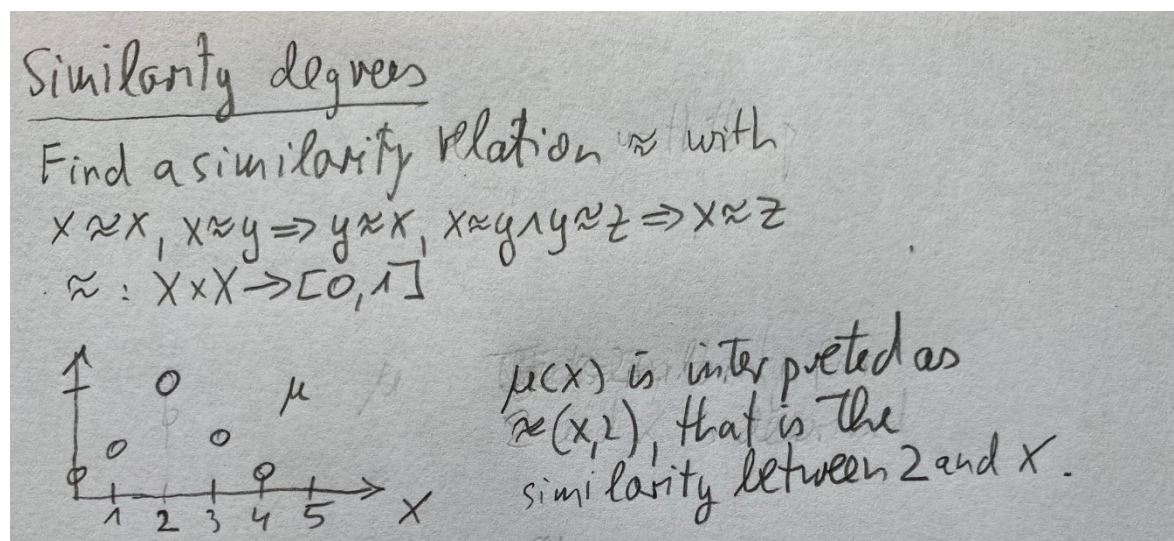 Similarity degrees
Find a similarity relation ≈ with
x≈x, x≈y ⇒ y≈x, x≈y∧y≈z ⇒ x≈z
≈ : X×X→[0,1]
μ
1 2 3 4 5 X
μ(x) is interpreted as
≈(x,2), that is the
similarity between 2 and X.